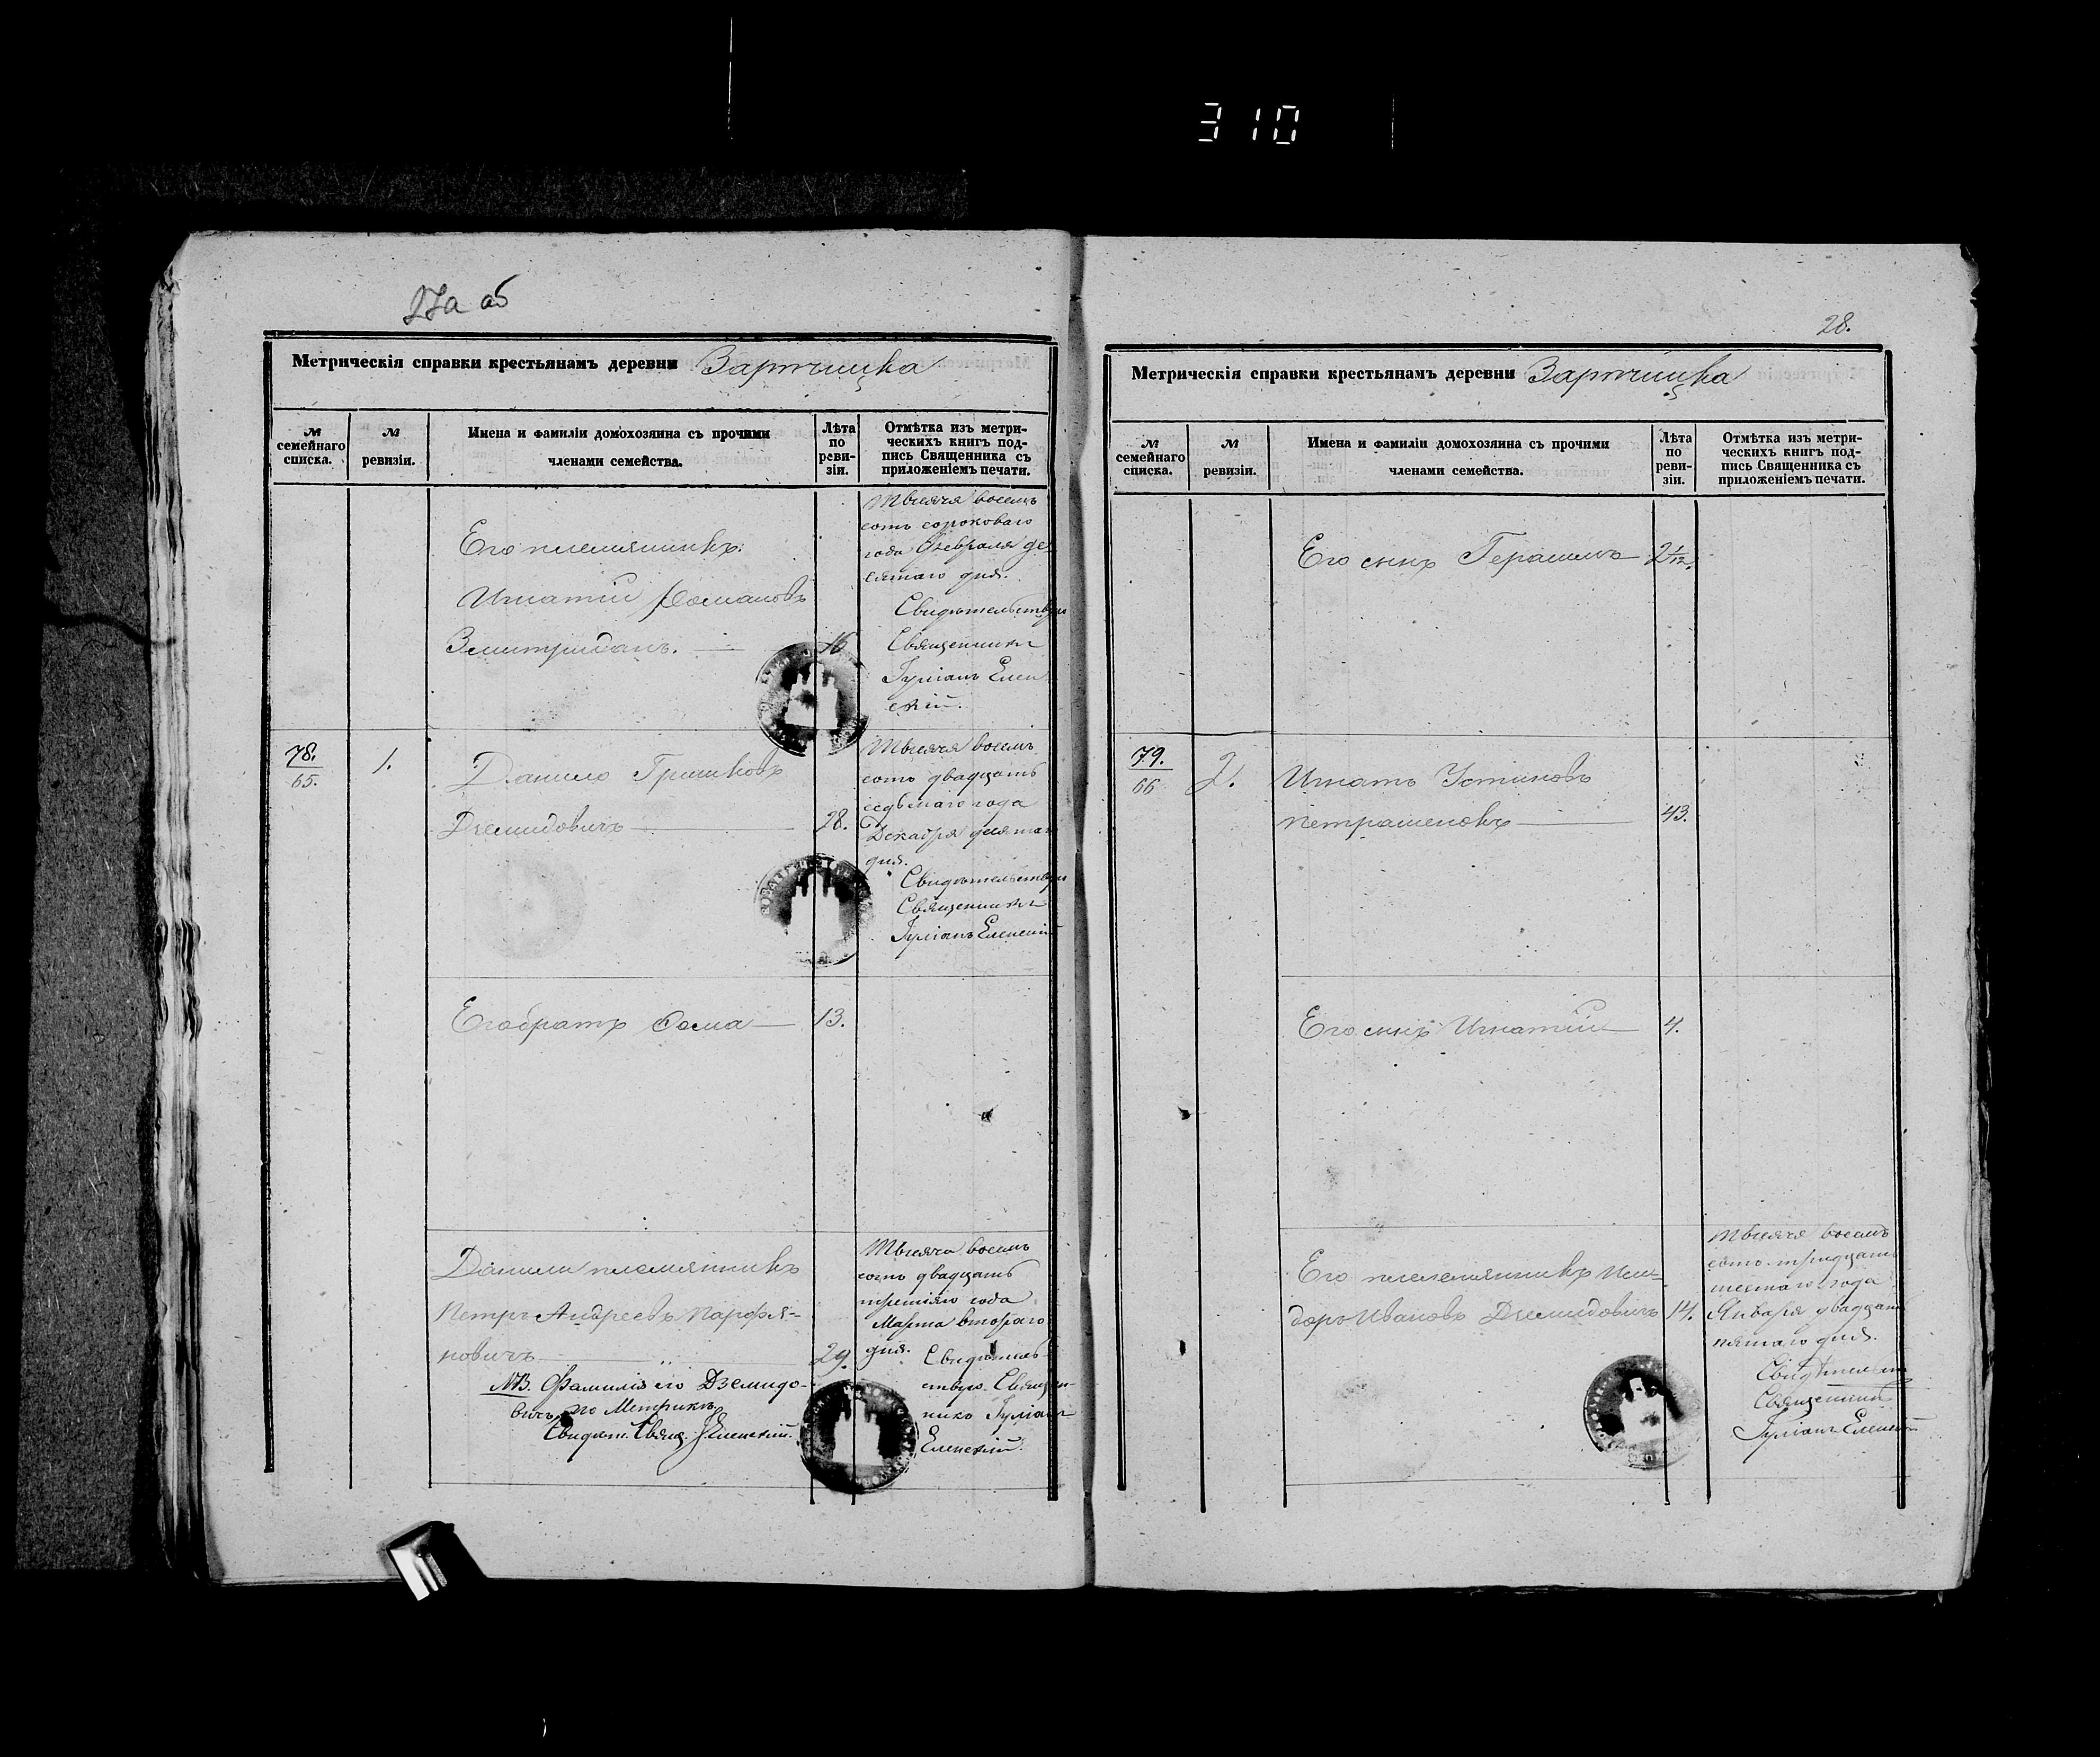 310
27а об
Метрическія справки крестьянамъ деревни Зартчицка
№ семейнаго списка.
№ ревизіи.
Имена и фамиліи домохозяина съ прочими членами семейства.
Лѣта по реви-зіи.
Отмѣтка изъ метри-ческихъ книгъ под-пись Священника съ приложеніемъ печати.
Его племянникъ
Игнатій Романовъ
16
Тысяча восемь
сотъ сороковаго
года Февраля де
сятаго дня.
Свидѣтельствую
Священникъ
Іуліанъ Елен
скій.
78.
65.
1.
Данило Гришковъ
Дземидовичъ
28.
Тысяча восемь
сотъ двадцать
седьмаго года
Декабря девятаго
дня.
Свидѣтельствую
Священникъ
Іуліанъ Еленскій
Его братъ Фома
13.
Данили племянникъ
Петръ Андреевъ Парфія-
новичъ
29.
NB. Фамилія его Дземидо-
вичъ по Метрикѣ
Свидѣт. Свящ. І. Еленскій.
Тысяча восемь
сотъ двадцать
третіяго года
Марта втораго
дня. Свидѣтель-
ствую. Священ-
никъ Іуліанъ
Еленскій.
28.
Метрическія справки крестьянамъ деревни Зартчицка
№ семейнаго списка.
№ ревизіи.
Имена и фамиліи домохозяина съ прочими членами семейства.
Лѣта по реви-зіи.
Отмѣтка изъ метри-ческихъ книгъ под-пись Священника съ приложеніемъ печати.
Его сынъ Герасимъ
2 1/12.
79.
66
2.
Игнатъ Устиновъ
Петрашеновъ
43.
Его сынъ Игнатій
4.
Его племянникъ Иси-
доръ Ивановъ Дземидовичъ
14.
Тысяча восемь
сотъ тридцать
шестаго года
Января двадцать
пятаго дня.
Свидѣтельст
Священникъ
Іуліанъ Еленскій